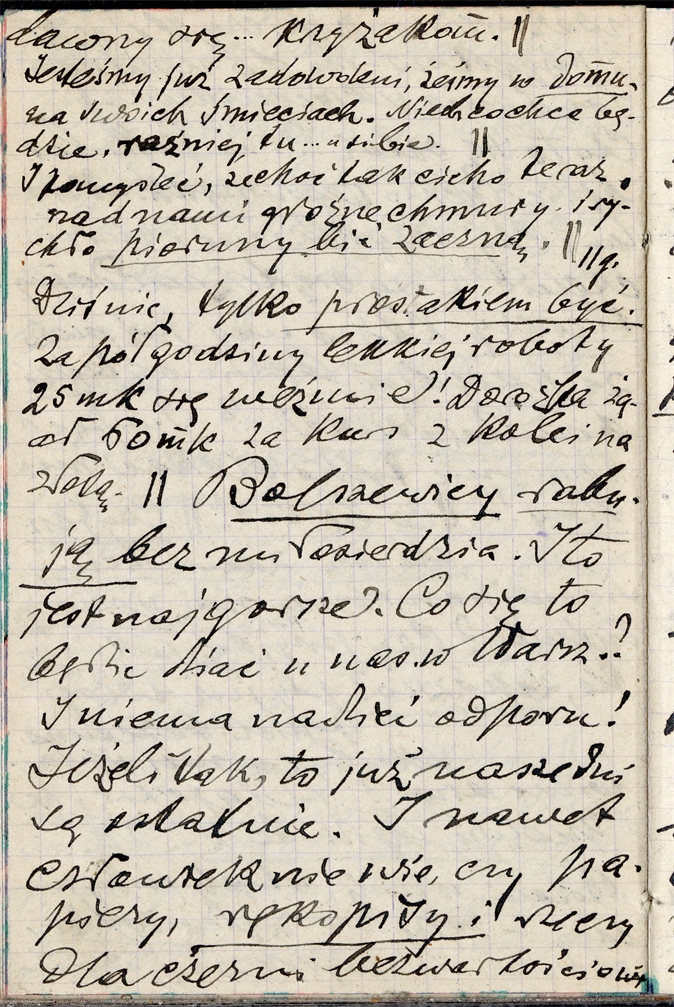 dacony się... Krzyżakom. ||
Jesteśmy już zadowoleni, żeśmy w domu,
na swoich śmieciach. Niech co chce bę-
dzie, raźniej tu... u siebie. ||
I pomyśleć, że choć tak cicho teraz,
nad nami groźne chmury. i ry-
chło pioruny bić zaczną. ||
Dziś nic, tylko prostakiem być.
Za pół godziny lekkiej roboty
25 mk się weźmie! Dorożka żą-
da 60 mk za kurs z kolei na
|| Bolszewicy rabu-
ją bez miłosierdzia. I to
jest najgorsze. Co się to
będzie dziać u nas w Warsz.?
I niema nadziei odporu!
Jeżeli tak, to już nasze dni
są ostatnie. I nawet
człowiek nie wie, czy pa-
piery, rękopisy i rzeczy
dla czerni bezwartościowe